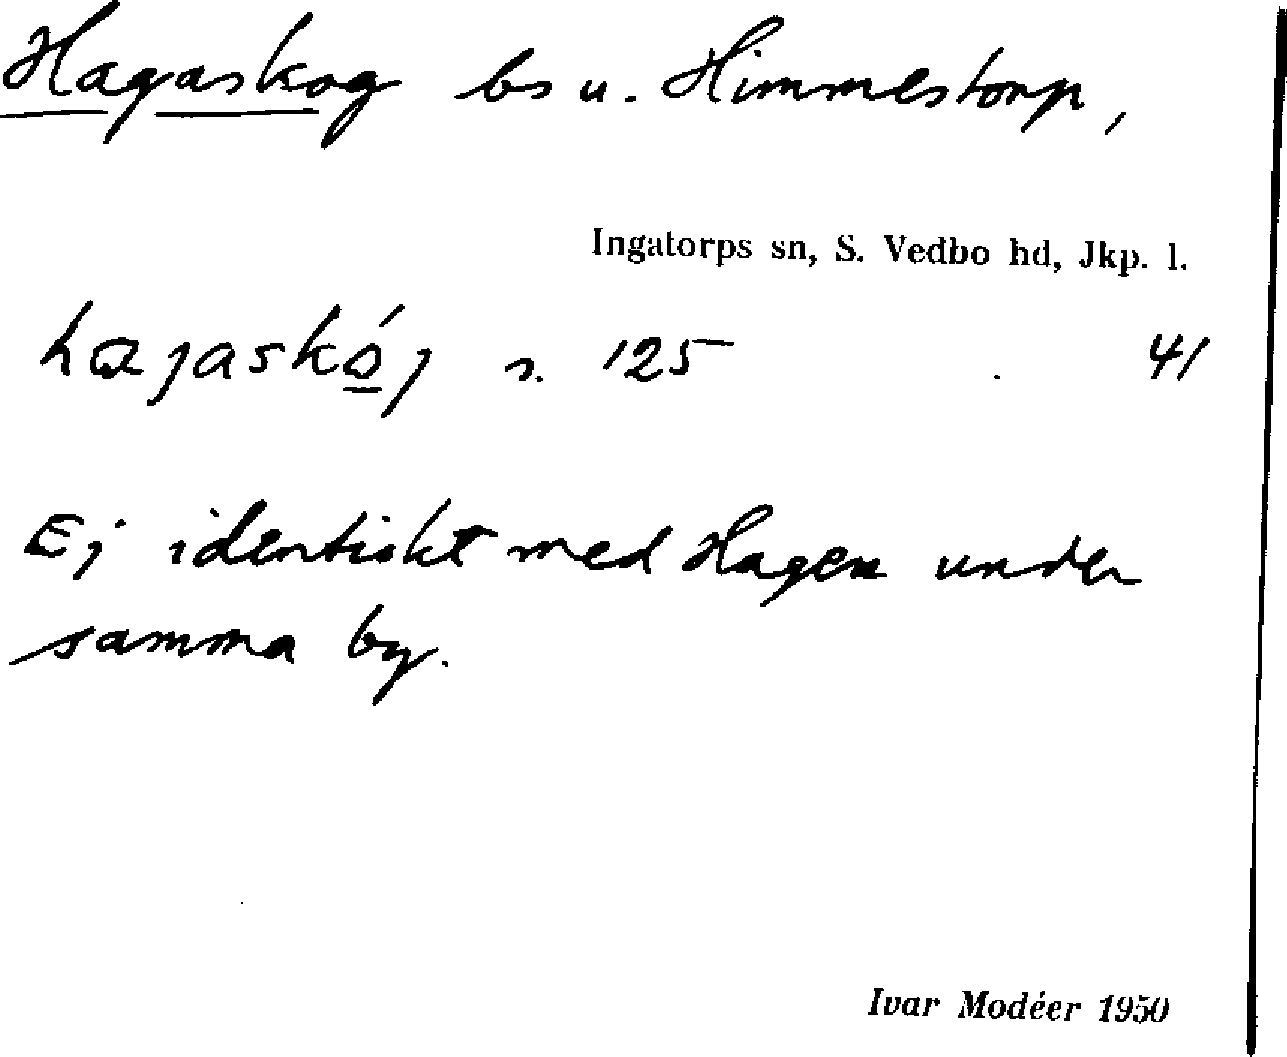 Hagaskog bs u. Himmelstorp,
Ingatorps sn, S. Vedbo hd, Jkp. l.
s. 125 41
Ej identiskt med Hagen under
samma by.
Ivar Modéer 1950